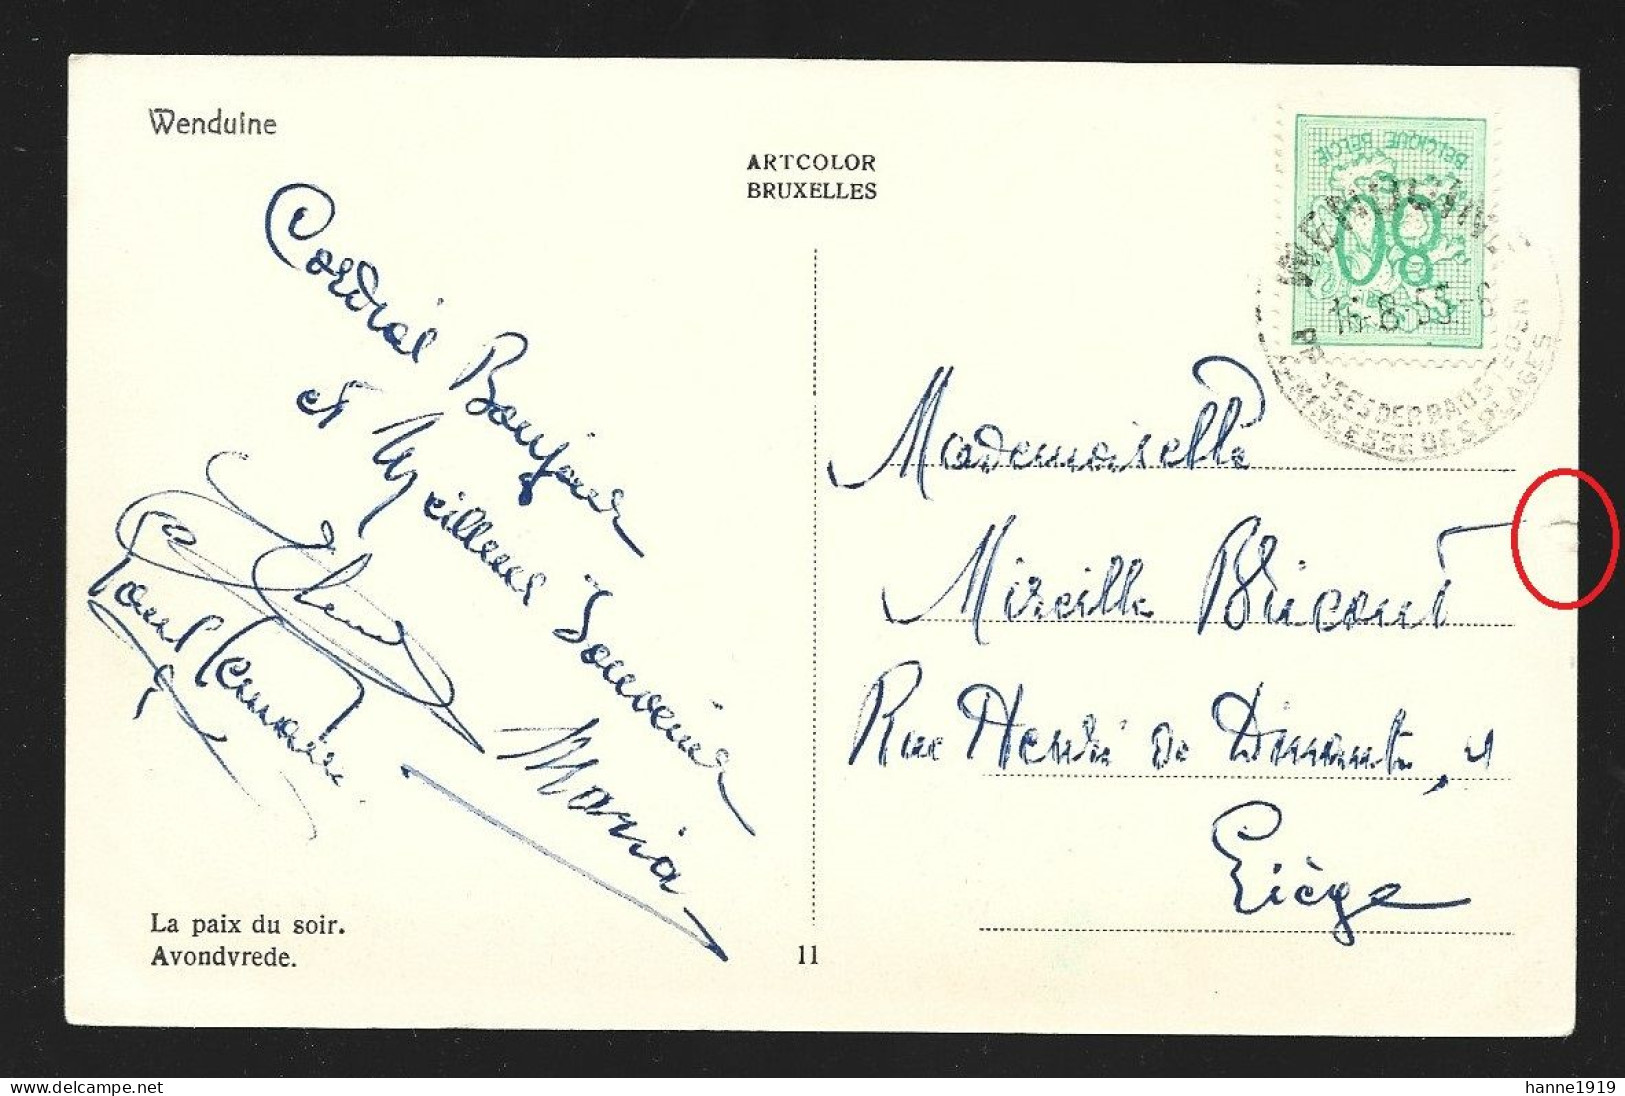 Wenduine
ARTCOLOR
BRUXELLES
Cordial Bonjour
et Meilleur Souvenir
Maria
Paul Lemaire
BELGIQUE BELGIE
80
WENDUINE
16-8-55-6
PRINSES DER BADSTEDEN
PRINCESSE DES PLAGES
Mademoiselle
Mireille Bricout
Rue Henri de Dinant, 1
Liège
La paix du soir.
Avondvrede.
11
www.delcampe.net
hanne1919